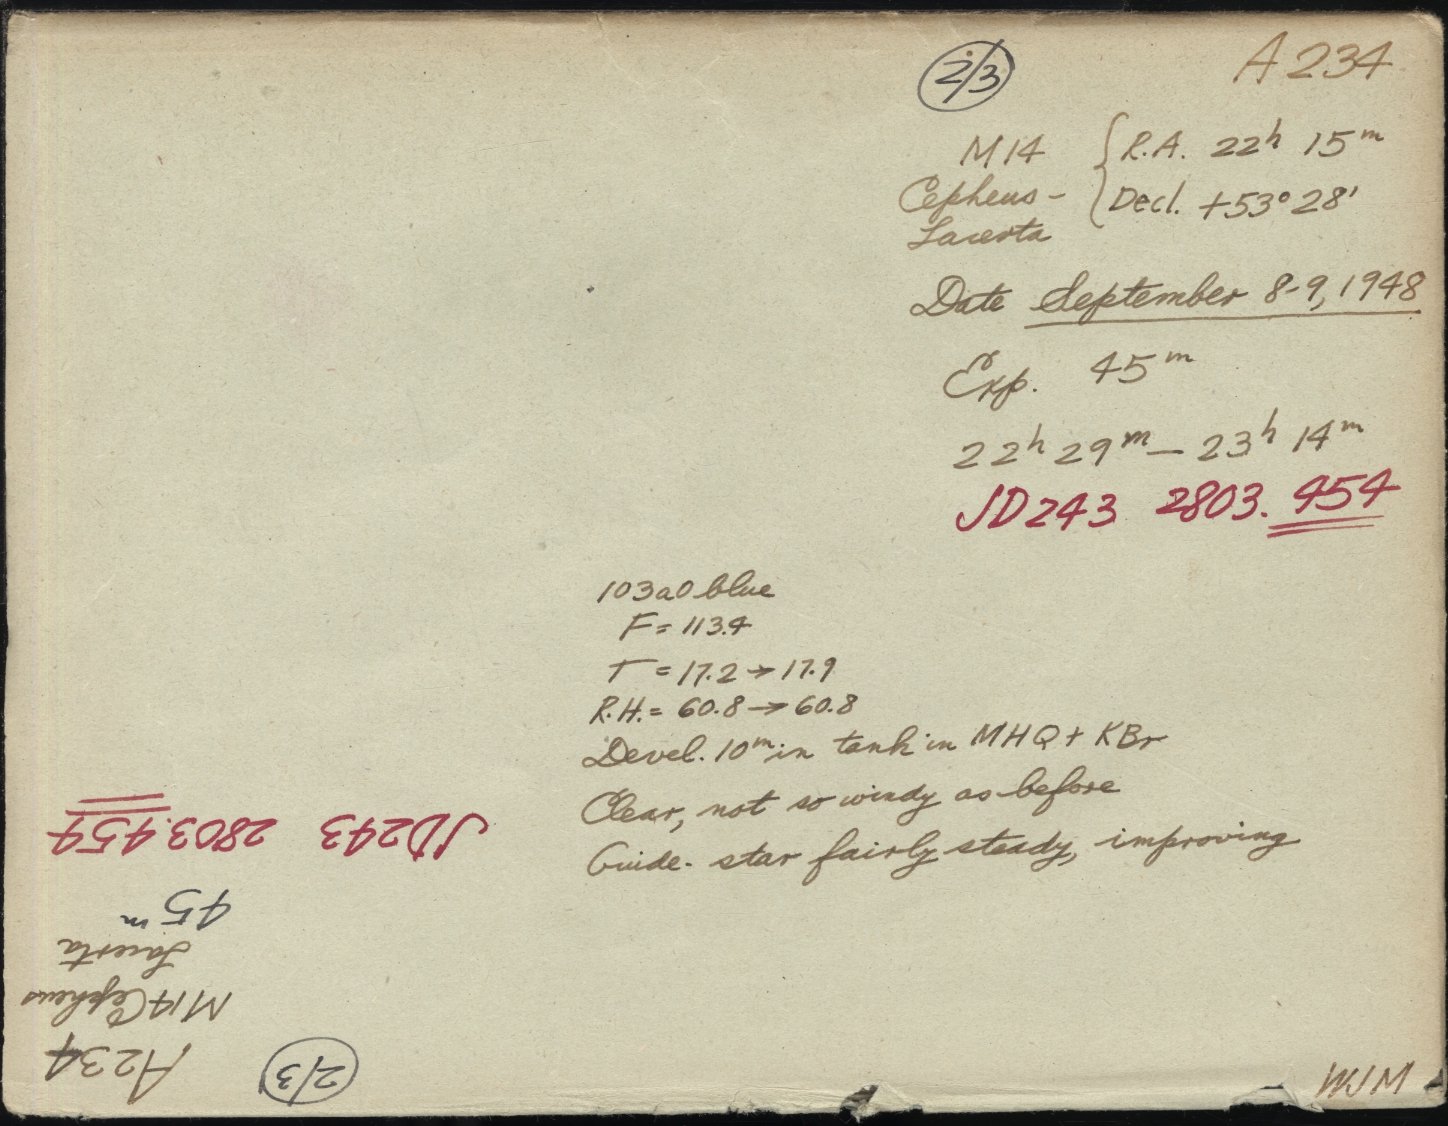 2/3
A 234
M14 { R.A. 22h 15m
Cepheus- Decl. +53° 28'
Lacerta
Date September 8-9, 1948
Exp. 45m
22h 29m – 23h 14m
JD243 2803.454
103a0 blue
F = 113.4
T = 17.2 → 17.9
R.H. = 60.8 → 60.8
Devel. 10m in tank in MHQ + KBr
Clear, not so windy as before
Guide-star fairly steady, improving
WJM
2/3
A234
M14 Cepheus
Lacerta
45m
JD243 2803.454